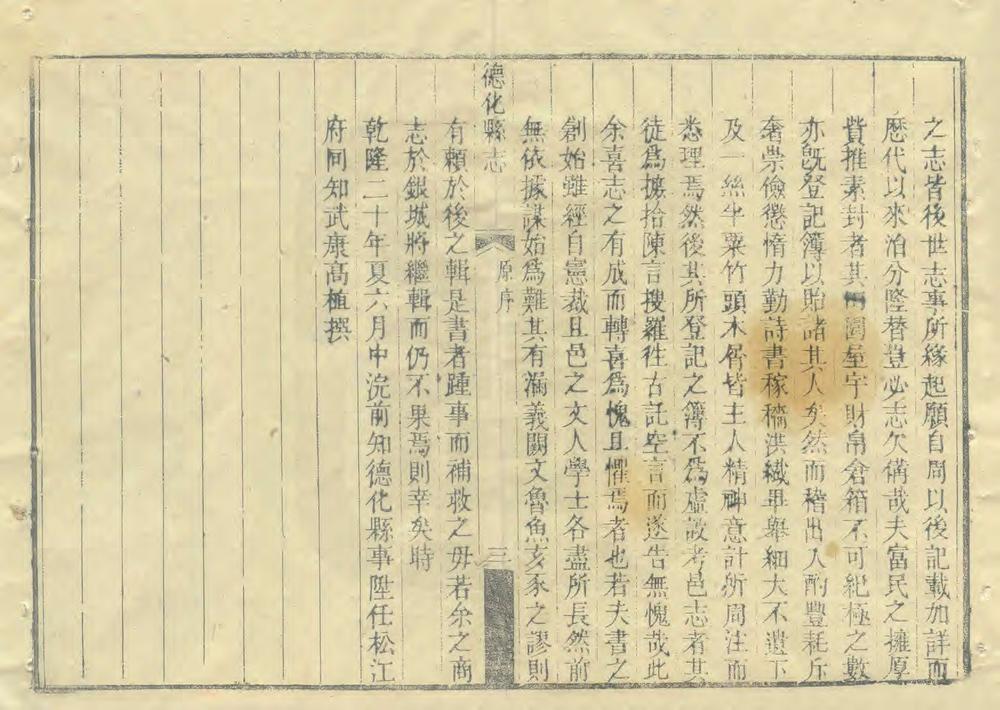 之志皆後世志事所緣起願自周以後記載加詳而
歷代以來沿分陞替豈必志欠備哉夫富民之擁厚
貲推素封者其園屋宇財帛倉箱不可紀極之數
亦旣登記簿以貽諸其人矣然而稽出入酌豐耗斥
奢崇儉懲惰力勤詩書稼穡洪纎畢舉細大不遺下
及一絲半粟竹頭木屑皆主人精神意計所周注而
悉理焉然後其所登記之簿不爲虛設考邑志者其
徒爲摭拾陳言搜羅徃古託空言而遂告無愧哉此
余喜志之有成而轉喜爲愧且懼焉者也若夫書之
創始雖經自憲裁且邑之文人學士各盡所長然前
無依據謀始爲難其有漏義闕文魯魚亥豕之謬則
德化縣志 原序 三
有賴於後之輯是書者踵事而補救之毋若余之商
志於銀城將繼輯而仍不果焉則幸矣時
乾隆二十年夏六月中浣前知德化縣事陞任松江
府同知武康高植撰